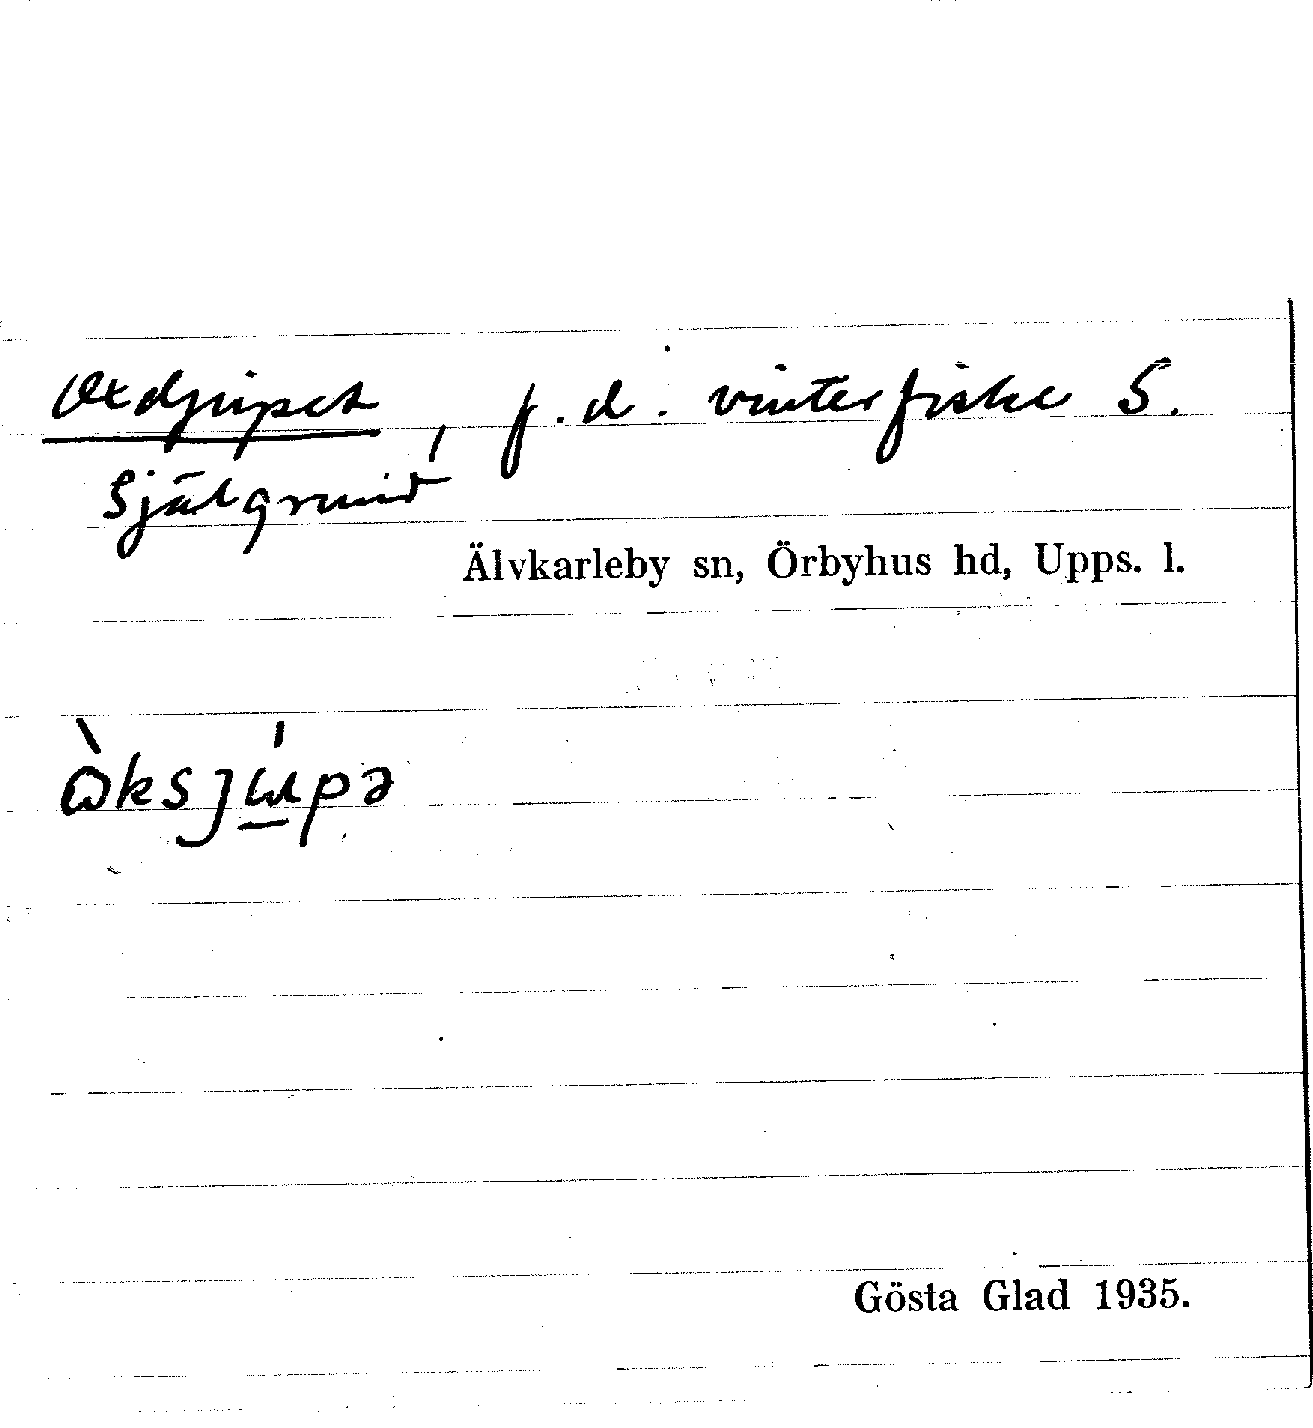 Oxdjupet, f.d. vinterfiske S.
Själgrund
Älvkarleby sn, Örbyhus hd, Upps. l.
Gösta Glad 1935.